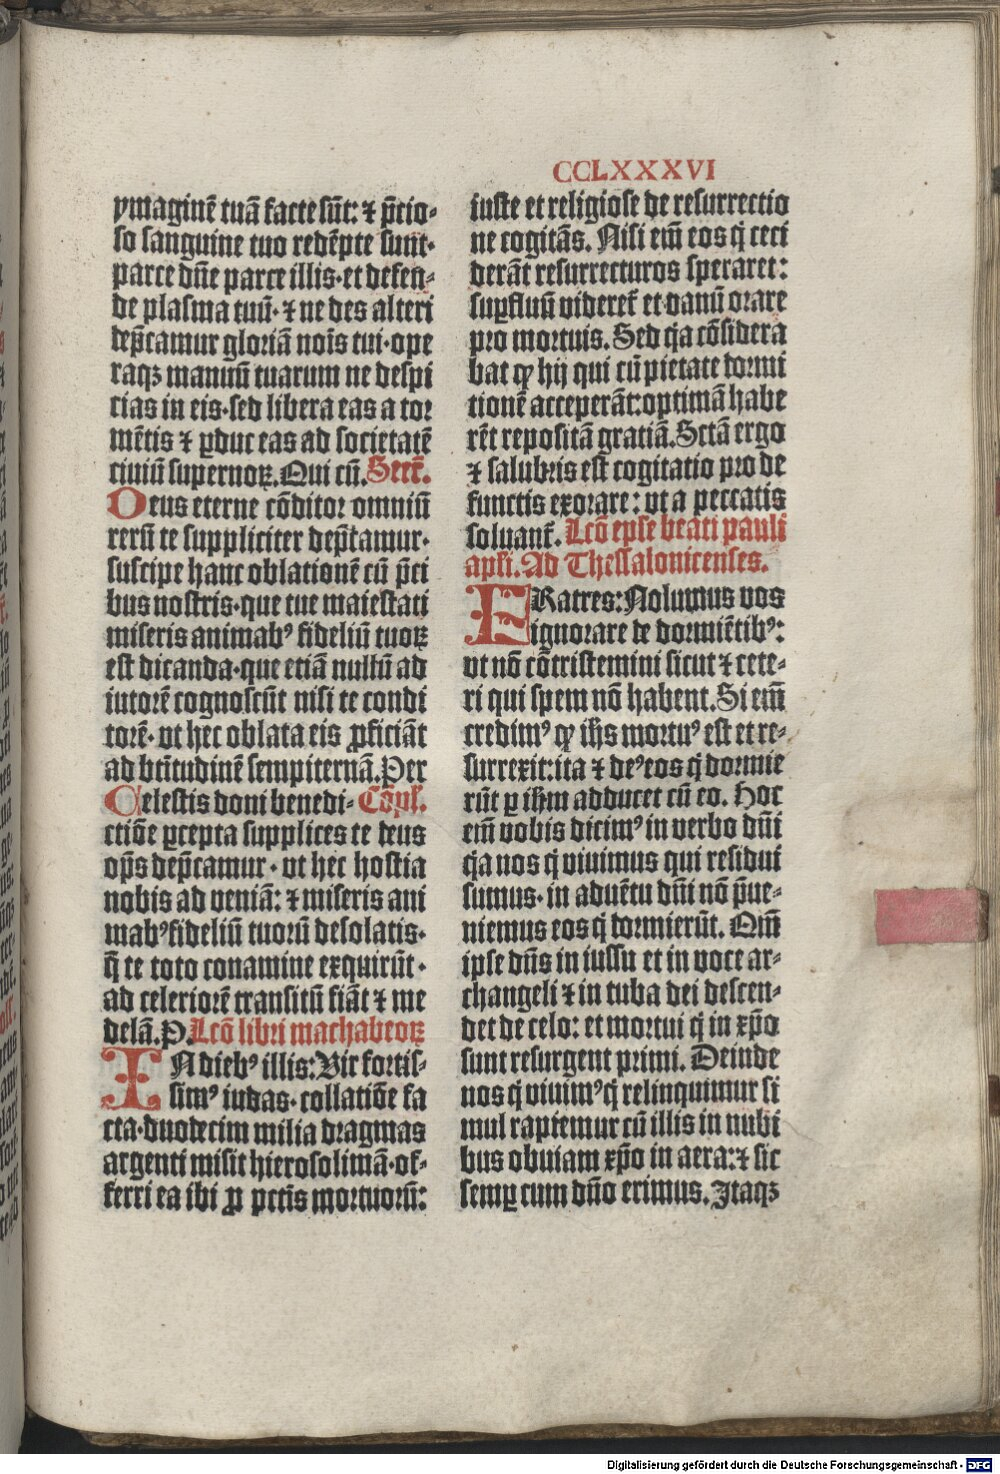 CCLXXXVI
ymaginē tuā facte sūt: ⁊ p̄cio-
so sanguine tuo redēpte sunt·
parce dn̄e parce illis·et defen-
de plasma tuū· ⁊ ne des alteri
dep̄camur gloriā noīs tui·ope
raqꝫ manuū tuarum ne despi
cias in eis·sed libera eas a tor
mētis ⁊ ꝑduc eas ad societatē
ciuiū supernoꝝ. Qui cū. Secr̄.
Deus eterne cōditor omniū
rerū te suppliciter dep̄camur·
suscipe hanc oblationē cū p̄ci
bus nostris·que tue maiestati
miseris animabꝰ fideliū tuoꝝ
est dicanda·que etiā nullū ad
iutorē cognoscūt nisi te condi
torē· vt hec oblata eis ꝓficiāt
ad bt̄itudinē sempiternā. Per
Celestis doni benedi- Cōpl̄.
ctiōe ꝑcepta supplices te deus
op̄s dep̄camur · vt hec hostia
nobis ad veniā: ⁊ miseris ani
mabꝰ fideliū tuorū desolatis·
q̄ te toto conamine exquirūt·
ad celeriorē transitū fiāt ⁊ me
delā. P. Lcō libri machabeoꝝ
IN diebꝰ illis: Vir fortis-
simꝰ iudas· collatiōe fa
cta·duodecim milia dragmas
argenti misit hierosolimā·of-
ferri ea ibi ꝓ pctīs mortuorū:
iuste et religiose de resurrectio
ne cogitās. Nisi em̄ eos q̇ ceci
derāt resurrecturos speraret:
suꝑfluū videret̄ et vanū orare
pro mortuis. Sed q̇a cōsidera
bat ꝙ hij qui cū pietate dormi
tionē acceperāt: optimā habe
rēt repositā gratiā. Sctā ergo
⁊ salubris est cogitatio pro de
functis exorare: vt a peccatis
soluant̄. Lcō epse beati pauli
apl̄i. Ad Thessalonicenses.
FRatres: Nolumus vos
ignorare de dormiētibꝰ:
vt nō cōtristemini sicut ⁊ cete-
ri qui spem nō habent. Si em̄
credimꝰ ꝙ ih̄s mortuꝰ est et re-
surrexit: ita ⁊ deꝰ eos q̇ dormie
rūt ꝑ ih̄m adducet cū eo. Hoc
em̄ vobis dicimꝰ in verbo dn̄i
q̇a nos q̇ viuimus qui residui
sumus· in aduētu dn̄i nō p̄ue-
niemus eos q̇ dormierūt. Qm̄
ipse dn̄s in iussu et in voce ar-
changeli ⁊ in tuba dei descen-
det de celo: et mortui q̇ in xp̄o
sunt resurgent primi. Deinde
nos q̇ viuimꝰ q̇ relinquimur si
mul rapiemur cū illis in nubi
bus obuiam xp̄o in aera: ⁊ sic
semꝑ cum dn̄o erimus. Itaqꝫ
Digitalisierung gefördert durch die Deutsche Forschungsgemeinschaft - DFG